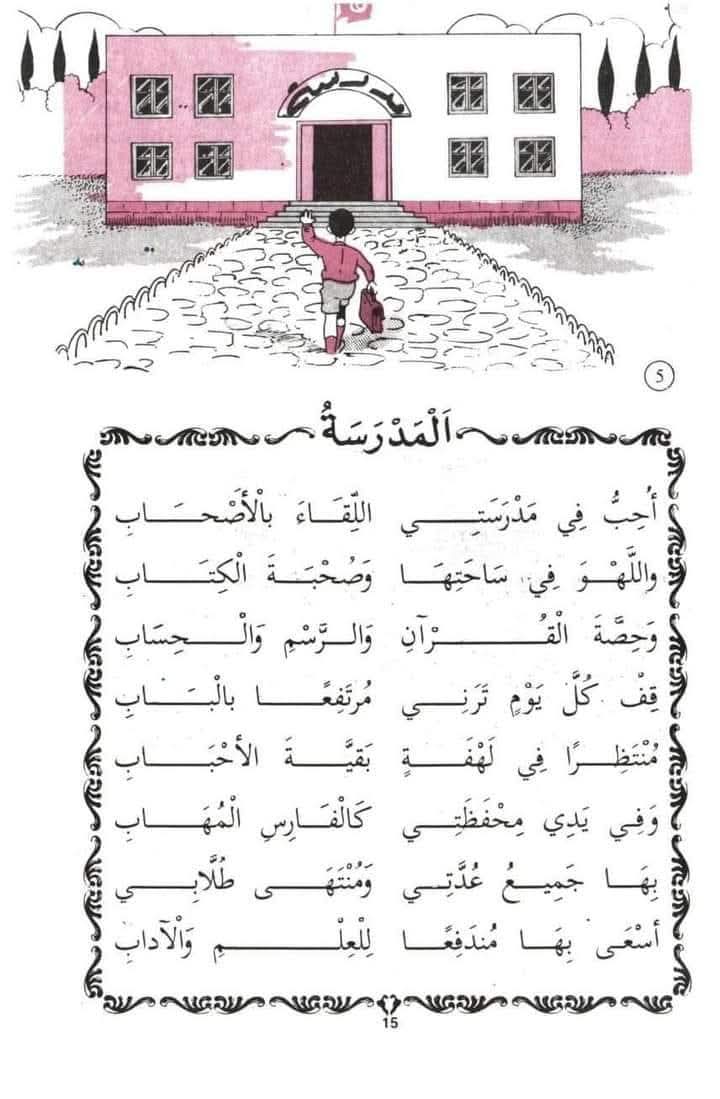 مدرسة
5
اَلْمَدْرَسَةُ
أُحِبُّ فِي مَدْرَسَتِي اللِّقَاءَ بِالْأَصْحَابِ
واللَّهْوَ فِي سَاحَتِهَا وَصُحْبَةَ الْكِتَابِ
وَحِصَّةَ الْقُرْآنِ وَالرَّسْمِ وَالْحِسَابِ
قِفْ كُلَّ يَوْمٍ تَرَنِي مُرْتَفِعًا بالْبَابِ
مُنْتَظِرًا فِي لَهْفَةٍ بَقيَّةَ الأحْبَابِ
وَفِي يَدِي مِحْفَظَتِي كَالْفَارِسِ الْمُهَابِ
بِهَا جَمِيعُ عُدَّتِي وَمُنْتَهَى طُلَّابِي
أسْعَى بِهَا مُندَفِعًا لِلْعِلْمِ وَالْآدابِ
15